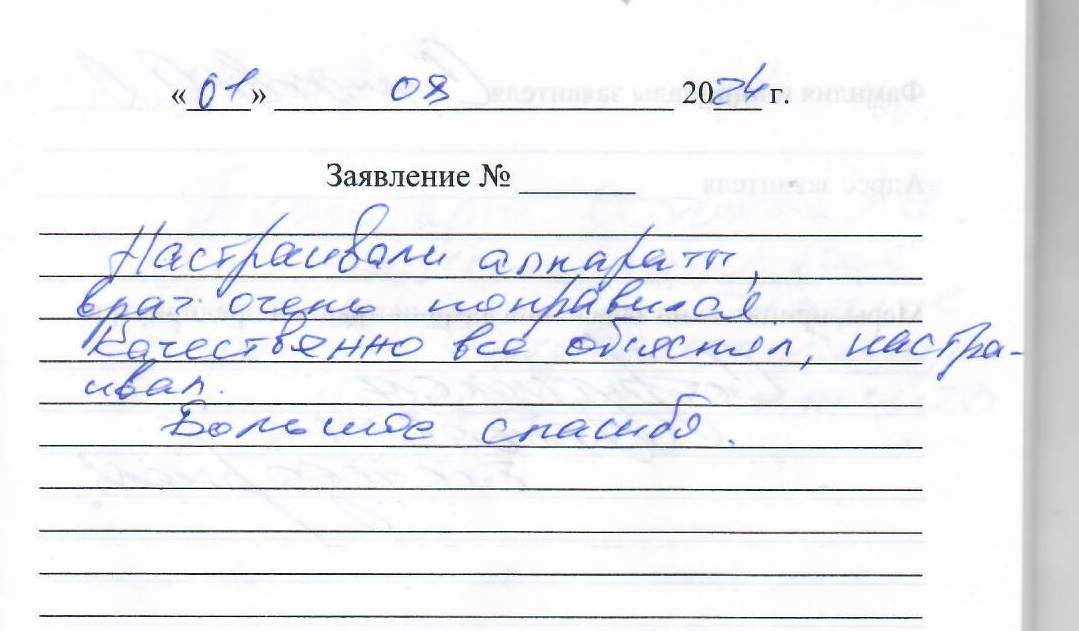 «01» 08 2024 г.
Заявление № ______
Настраивали аппараты,
врач очень понравился.
Качественно все объяснял, настра-
ивал.
Большое спасибо.